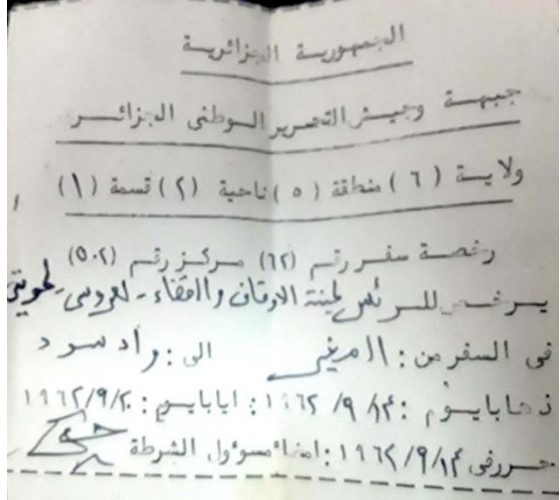 الجمهورية الجزائرية
جبهة وجيش التحرير الوطني الجزائر
ولاية (٦) منطقة (٥) ناحية (٢) قسمة (١)
رخصة سفر رقم (٦٢) مركز رقم (٥٠٢)
يرخص للسر ئس لجنة الاوقاف والقضاء - لعروسي
في السفر من: المغير الى: واد سود
ذهابا يوم: ١٩٦٢/٩/١٤: ايابا يوم: ١٩٦٢/٩/٢٠
حرر في ١٩٦٢/٩/١٤: امضاء مسوؤل الشرطة